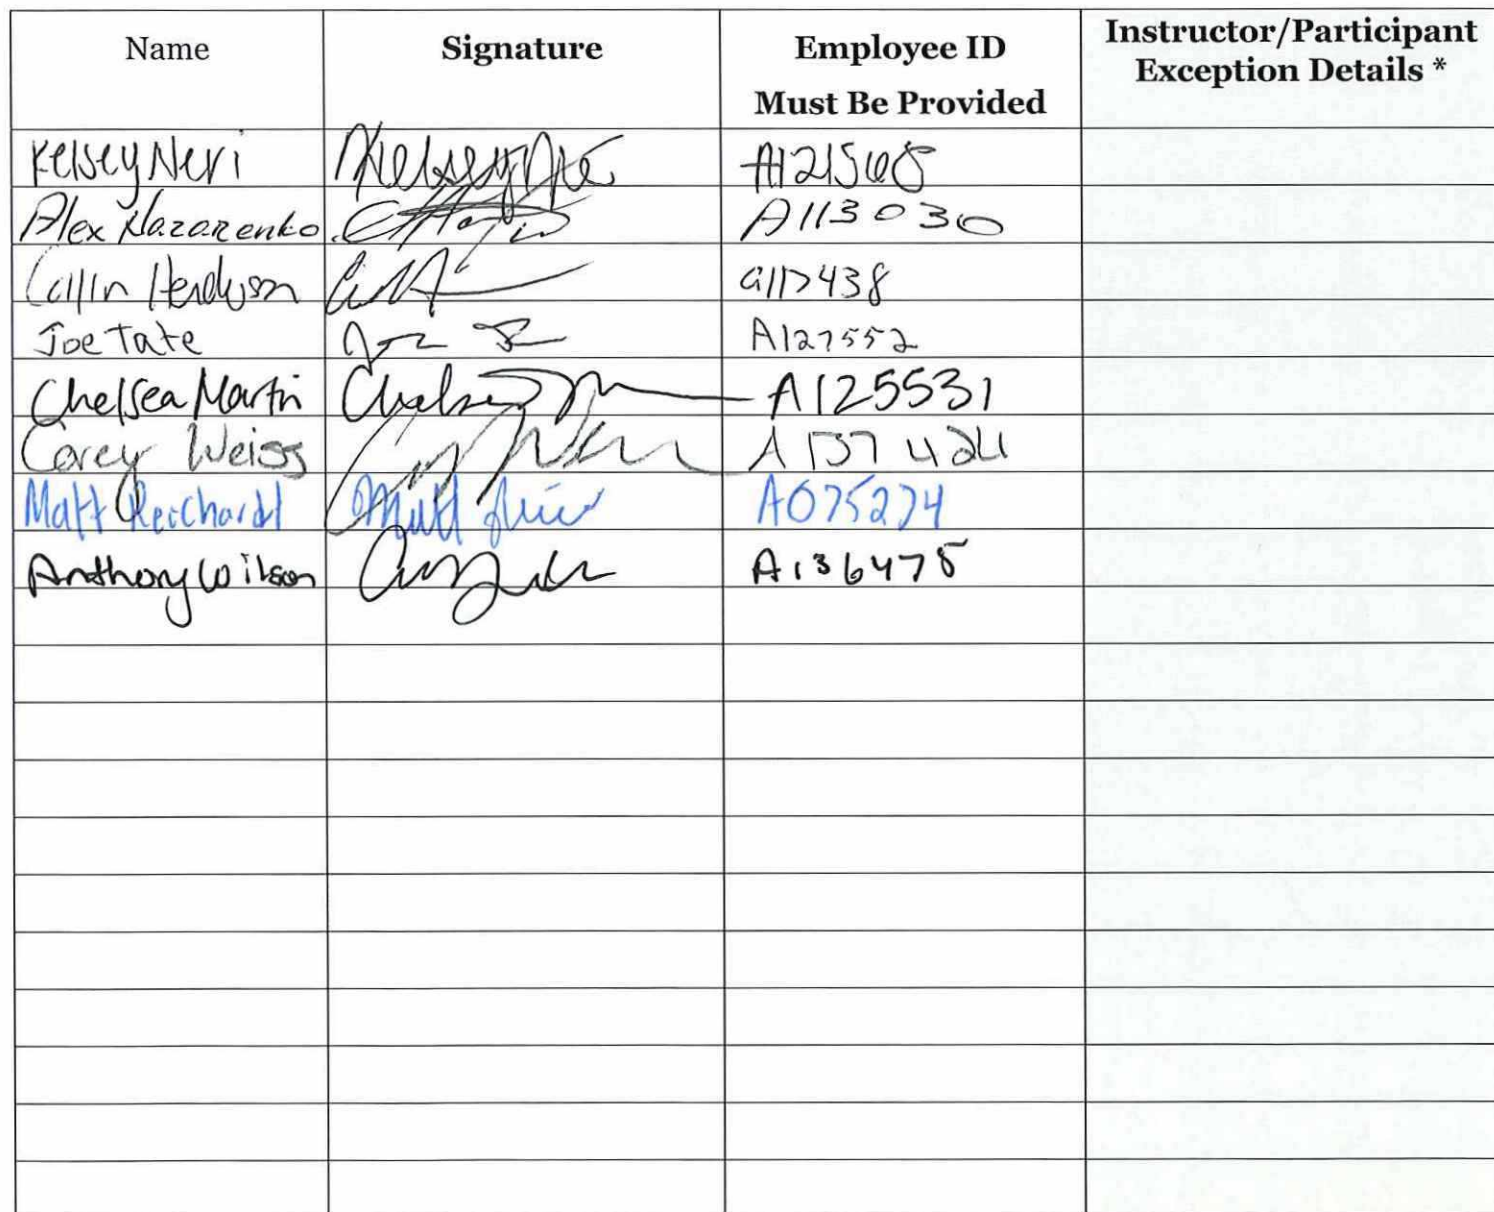 Name Signature Employee ID Must Be Provided Instructor/Participant Exception Details *
Kelsey Neri A121568
Alex Nazarenko A113030
Collin Henderson a117438
Joe Tate A127552
Chelsea Martin Chelsea A125531
Corey Weiss A137424
Matt Reichardt Matt A075274
Anthony Wilson A136475